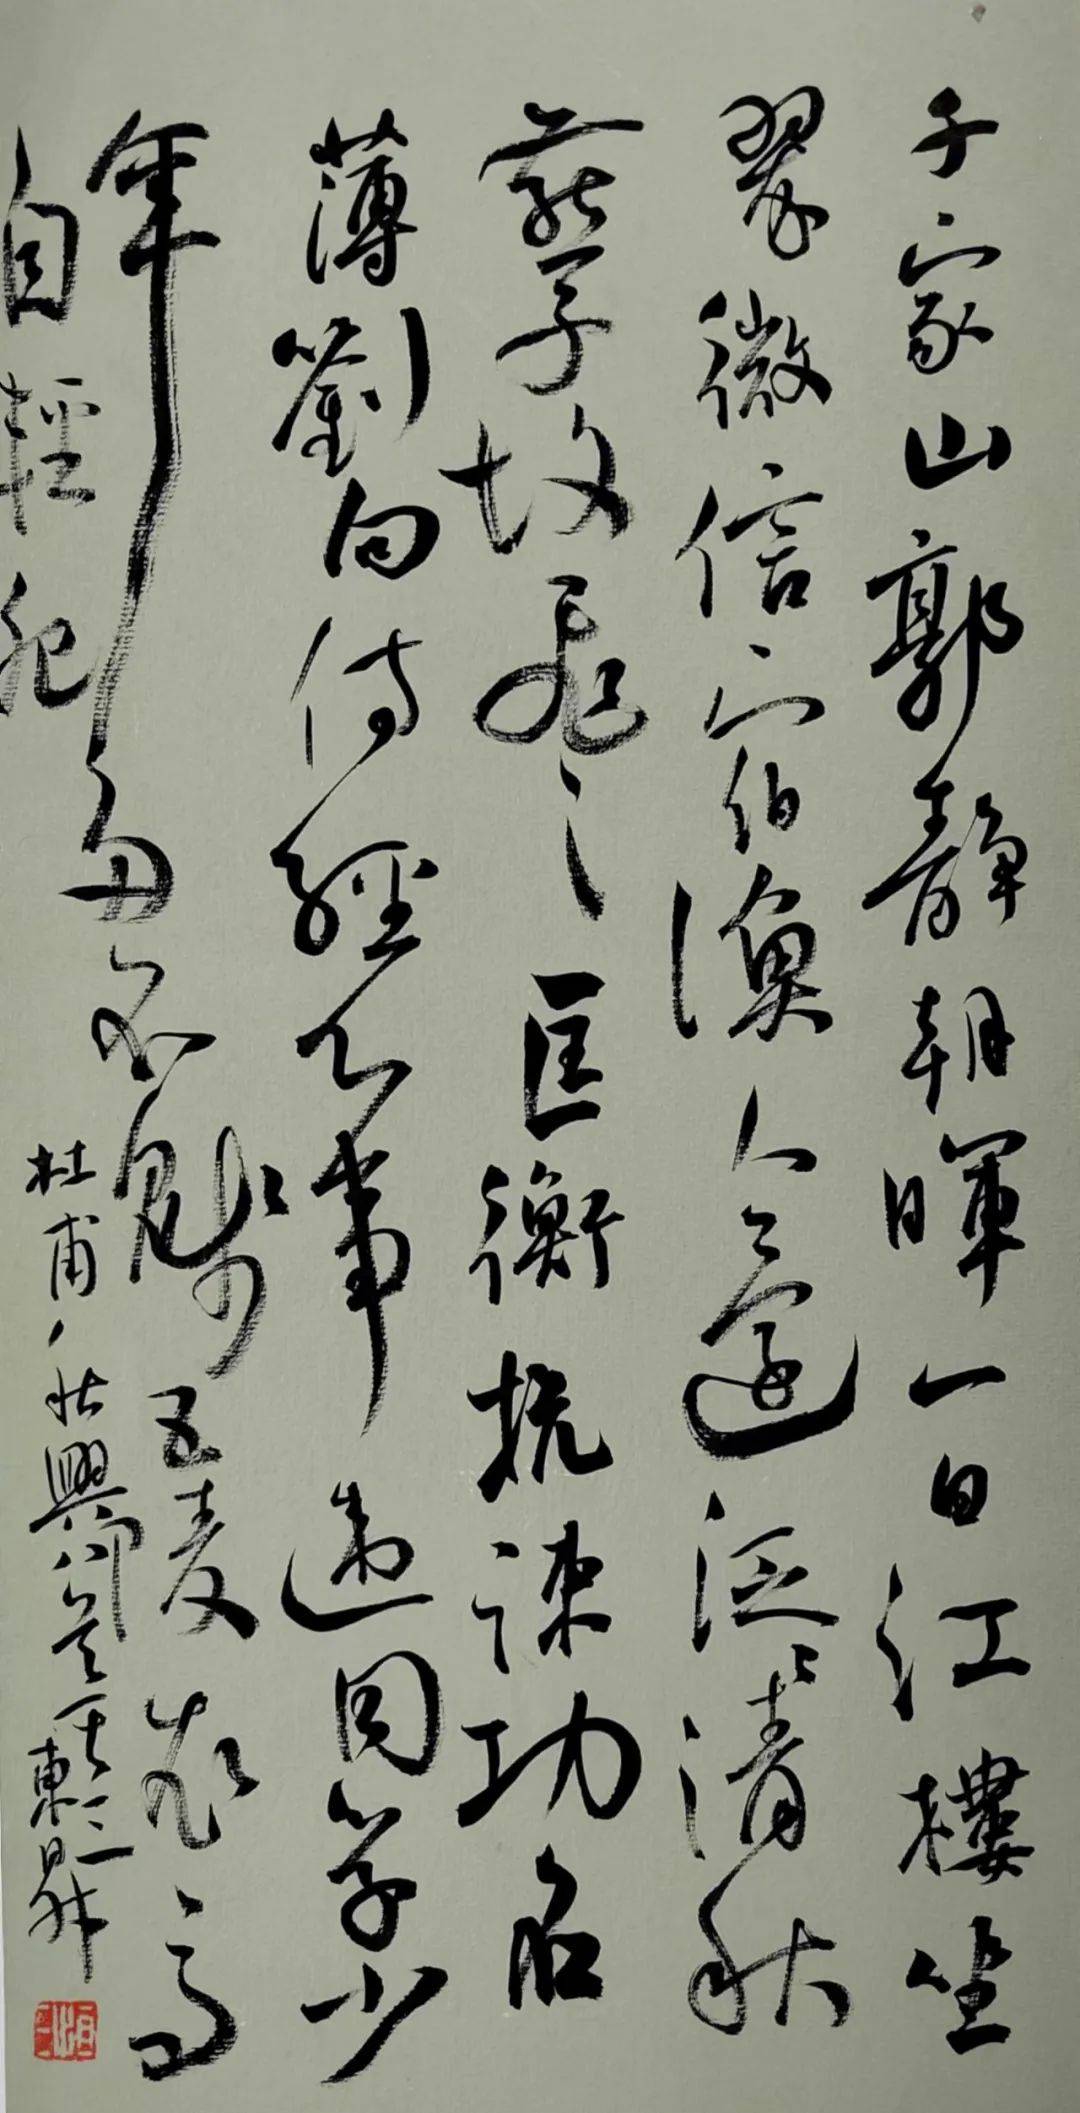 千家山郭靜朝暉一日江樓坐
翠微信宿漁人還泛泛清秋
燕子故飛飛匡衡抗疏功名
薄劉向傳經心事違同學少
年多不賤五陵衣馬
自輕肥
杜甫秋興八首其三東昇